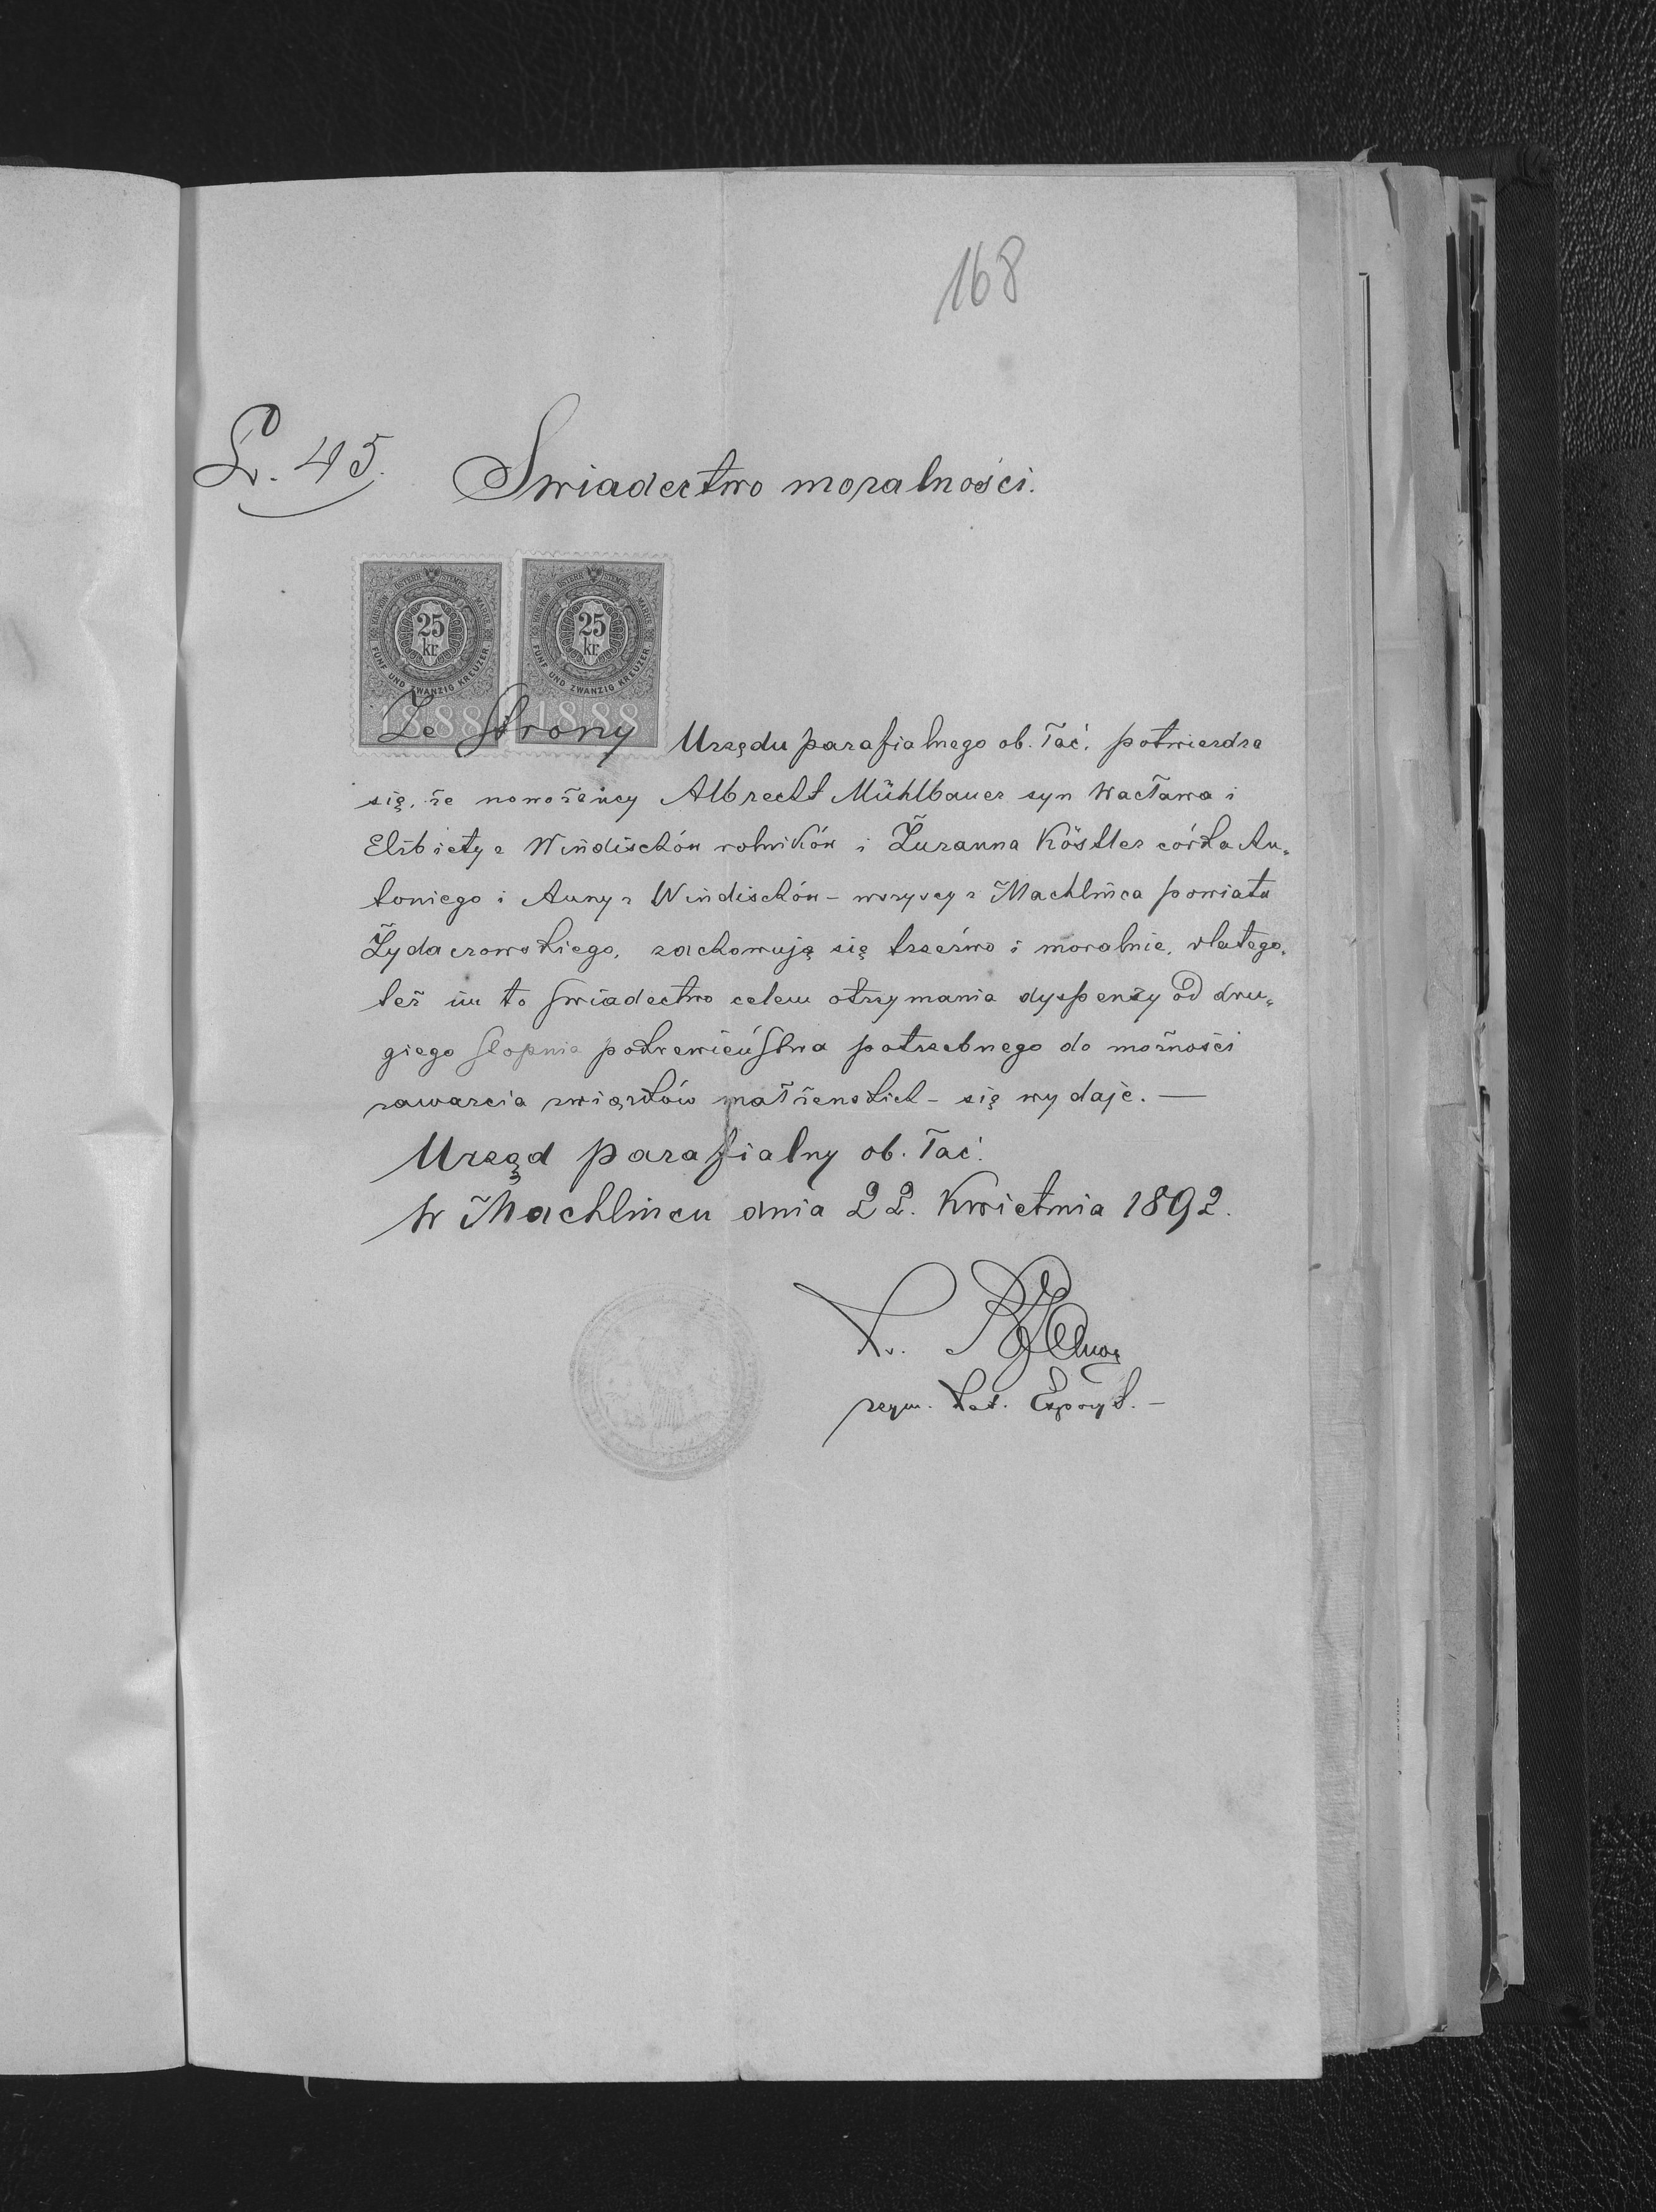 168
L. 45.
Swiadectwo moralności.
ÖSTERR. STEMPEL MARKE
25 kr
FÜNF UND ZWANZIG KREUZER
1888
ÖSTERR. STEMPEL MARKE
25 kr
FÜNF UND ZWANZIG KREUZER
1888
Ze Strony Urzędu parafialnego ob. łać. potwierdza
się, że nowożeńcy Albrecht Mühlbauer syn Wacława i
Elżbiety z Windischów rolników i Zuzanna Köstler córka An„
toniego i Anny z Windischów - wszyscy z Machlińca powiatu
Żydaczowskiego, zachowują się trzeźwo i moralnie, dlatego„
też im to świadectwo celem otrzymania dyspenzy od dru„
giego stopnia pokrewieństwa potrzebnego do możności
zawarcia związków małżenskich - się wydaje. —
Urząd parafialny ob. łać.
W Machlińcu dnia 22. Kwietnia 1892.
X.
rzym. kat. Expozyt. —